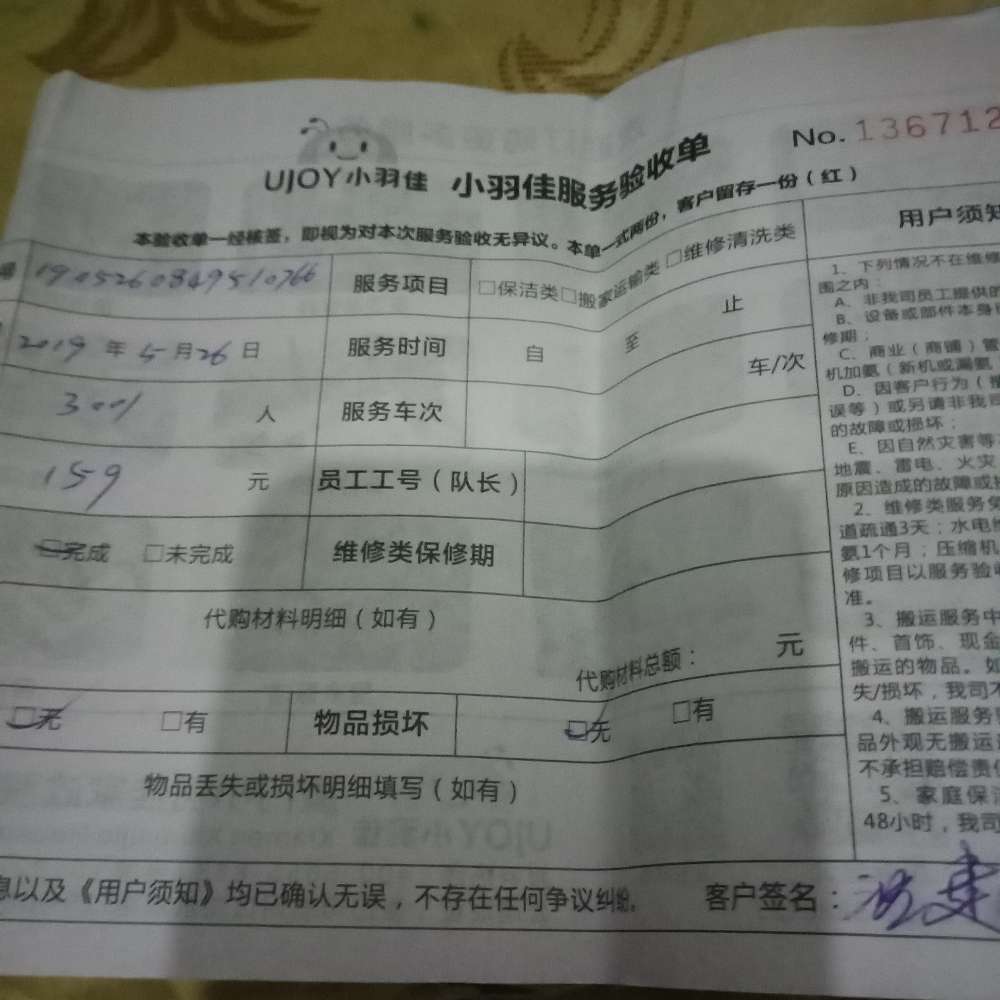 No. 136712
UJOY小羽佳 小羽佳服务验收单
本验收单一经核签，即视为对本次服务验收无异议。本单一式两份，客户留存一份（红）
190526084951076 服务项目 □保洁类□搬家运输类 □维修清洗类
2019 年 5 月 26 日 服务时间 自 至 止
人 服务车次 车/次
159 元 员工工号（队长）
□完成 □未完成 维修类保修期
代购材料明细（如有）
代购材料总额： 元
□无 □有 物品损坏 □无 □有
物品丢失或损坏明细填写（如有）
息以及《用户须知》均已确认无误，不存在任何争议纠纷。 客户签名：
用户须知
1、下列情况不在维修
围之内：
A、非我司员工提供的
B、设备或部件本身
修期；
C、商业（商铺）管
机加氨（新机或漏氨
D、因客户行为（
误等）或另请非我司
的故障或损坏；
E、因自然灾害等
地震、雷电、火灾
原因造成的故障或
2、维修类服务
道疏通3天；水电
氨1个月；压缩机
修项目以服务验收
准。
3、搬运服务中
件、首饰、现金
搬运的物品。如
失/损坏，我司不
4、搬运服务
品外观无搬运
不承担赔偿责任
5、家庭保洁
48小时，我司